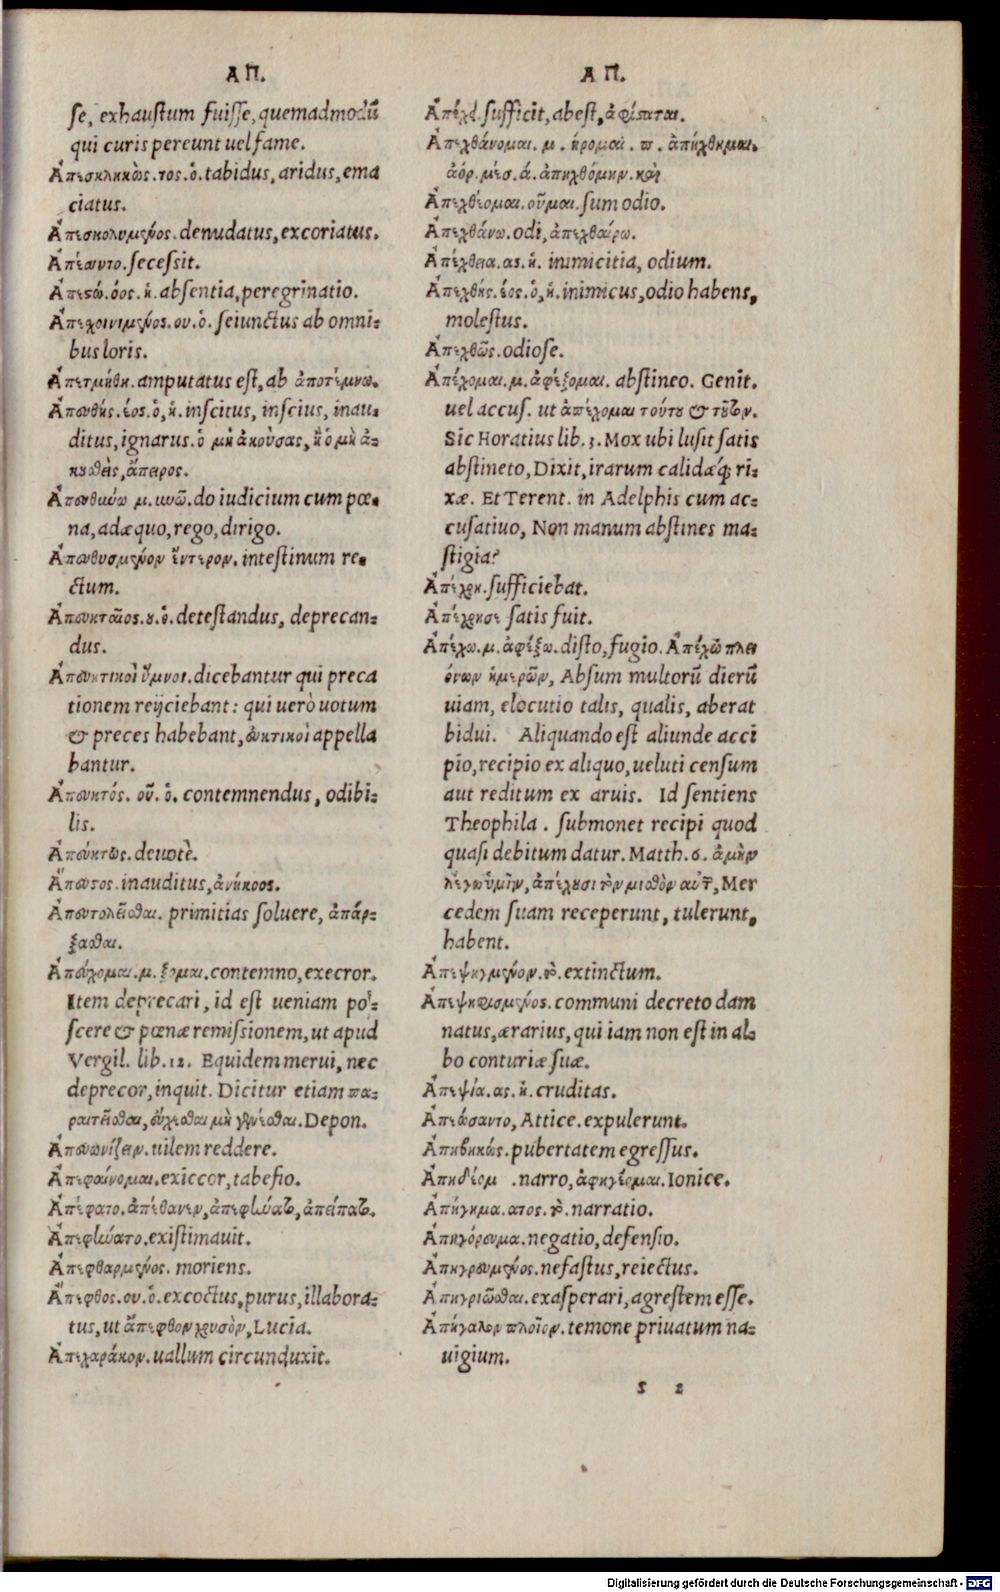 ΑΠ.
se, exhaustum fuisse, quemadmodũ
qui curis pereunt uel fame.
Ἀπεσκληκὼς.τος.ὁ. tabidus, aridus, ema
ciatus.
Ἀπεσκολυμμένος. denudatus, excoriatus.
Ἀπέσσυτο. secessit.
Ἀπεστώ.όος.ἡ. absentia, peregrinatio.
Ἀπεσχοινισμένος.ου.ὁ. seiunctus ab omni-
bus loris.
Ἀπετμήθη. amputatus est, ab ἀποτέμνω.
Ἀπευθὴς.έος.ὁ,ἡ. inscitus, inscius, inau-
ditus, ignarus. ὁ μὴ ἀκούσας, ἢ ὁ μὴ ἀ-
κουσθεὶς, ἄπειρος.
Ἀπευθύνω μ. υνῶ. do iudicium cum pœ-
na, adæquo, rego, dirigo.
Ἀπευθυσμένον ἔντερον. intestinum re-
ctum.
Ἀπευκταῖος.ου.ὁ. detestandus, deprecan-
dus.
Ἀπευκτικοὶ ὕμνοι. dicebantur qui preca
tionem reijciebant: qui uerò uotum
& preces habebant, εὐκτικοὶ appella
bantur.
Ἀπευκτός. οῦ. ὁ. contemnendus, odibi-
lis.
Ἀπεύκτως. deuotè.
Ἄπευστος. inauditus, ἀνήκοος.
Ἀπευτολεῖσθαι. primitias soluere, ἀπάρ-
ξασθαι.
Ἀπεύχομαι.μ.ξομαι. contemno, execror.
Item deprecari, id est ueniam po-
scere & pœnæ remissionem, ut apud
Vergil. lib.12. Equidem merui, nec
deprecor, inquit. Dicitur etiam πα-
ραιτεῖσθαι, εὔχεσθαι μὴ γενέσθαι. Depon.
Ἀπευωνίζειν. uilem reddere.
Ἀπεφαύνομαι. exiccor, tabefio.
Ἀπέφατο. ἀπέθανεν, ἀπεφήνατο, ἀπείπατο.
Ἀπεφήνατο. existimauit.
Ἀπεφθαρμένος. moriens.
Ἄπεφθος.ου.ὁ. excoctus, purus, illabora-
tus, ut ἄπεφθον χρυσὸν, Lucia.
Ἀπεχαράκον. uallum circunduxit.
ΑΠ.
Ἀπέχει. sufficit, abest, ἀφίσταται.
Ἀπεχθάνομαι. μ. ήσομαι. π. ἀπήχθημαι.
ἀόρ. μέσ. ά. ἀπηχθόμην. καὶ
Ἀπεχθέομαι. οῦμαι. sum odio.
Ἀπεχθάνω. odi, ἀπεχθαίρω.
Ἀπέχθεια.ας.ἡ. inimicitia, odium.
Ἀπεχθής.έος.ὁ,ἡ. inimicus, odio habens,
molestus.
Ἀπεχθῶς. odiose.
Ἀπέχομαι.μ.ἀφέξομαι. abstineo. Genit.
uel accus. ut ἀπέχομαι τούτου & τοῦτον.
Sic Horatius lib.3. Mox ubi lusit satis
abstineto, Dixit, irarum calidæq́; ri-
xæ. Et Terent. in Adelphis cum ac-
cusatiuo, Non manum abstines ma-
stigia?
Ἀπέχρη. sufficiebat.
Ἀπέχρησε satis fuit.
Ἀπέχω.μ.ἀφέξω. disto, fugio. Ἀπέχω πλει
όνων ἡμερῶν, Absum multorũ dierũ
uiam, elocutio talis, qualis, aberat
bidui. Aliquando est aliunde acci
pio, recipio ex aliquo, ueluti censum
aut reditum ex aruis. Id sentiens
Theophila. submonet recipi quod
quasi debitum datur. Matth.6. ἀμὴν
λέγω ὑμῖν, ἀπέχουσι τὸν μισθὸν αὐτῶν, Mer
cedem suam receperunt, tulerunt,
habent.
Ἀπεψηγμένον. τὸ. extinctum.
Ἀπεψηφισμένος. communi decreto dam
natus, ærarius, qui iam non est in al-
bo conturiæ suæ.
Ἀπεψία.ας.ἡ. cruditas.
Ἀπεώσαντο, Attice. expulerunt.
Ἀπηβηκώς. pubertatem egressus.
Ἀπηγέομ . narro, ἀφηγέομαι. Ionice.
Ἀπήγημα.ατος.τὸ. narratio.
Ἀπηγόρευμα. negatio, defensio.
Ἀπηγορευμένος. nefastus, reiectus.
Ἀπηγριῶσθαι. exasperari, agrestem esse.
Ἀπήγαλον πλοῖον. temone priuatum na-
uigium.
s 2
Digitalisierung gefördert durch die Deutsche Forschungsgemeinschaft - DFG